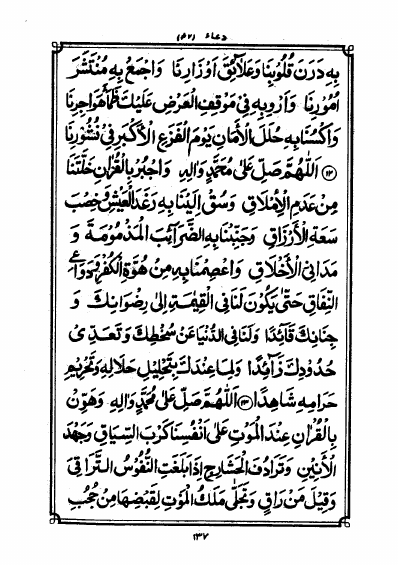 دعاء (٤٢)
بِهِ دَرَنَ قُلُوْبِنَا وَعَلَآئِقَ اَوْزَارِنَا وَاجْمَعْ بِهِ مُنْتَشَرَ
اُمُوْرِنَا وَاَرْوِبِهِ فِىْ مَوْقِفِ الْعَرْضِ عَلَيْكَ ظَمَأَ هَوَاجِرِنَا
وَاكْسُنَا بِهِ حُلَلَ الْاَمَانِ يَوْمَ الْفَزَعِ الْاَكْبَرِ فِىْ نُشُوْرِنَا
(١٢) اَللّٰهُمَّ صَلِّ عَلٰى مُحَمَّدٍ وَاٰلِهِ وَاجْبُرْ بِالْقُرْاٰنِ خَلَّتَنَا
مِنْ عَدَمِ الْاِمْلَاقِ وَسُقْ اِلَيْنَا بِهِ رَغَدَ الْعَيْشِ وَخِصْبَ
سَعَةِ الْاَرْزَاقِ وَجَنِّبْنَا بِهِ الضَّرَآئِبَ الْمَذْمُوْمَةَ وَ
مَدَانِىَ الْاَخْلَاقِ وَاعْصِمْنَا بِهِ مِنْ هُوَّةِ الْكُفْرِ وَدَوَاعِى
النِّفَاقِ حَتّٰى يَكُوْنَ لَنَا فِى الْقِيٰمَةِ اِلٰى رِضْوَانِكَ وَ
جِنَانِكَ قَآئِدًا وَلَنَا فِى الدُّنْيَا عَنْ سُخْطِكَ وَتَعَدِّىْ
حُدُوْدِكَ ذَآئِدًا وَلِمَا عِنْدَكَ بِتَحْلِيْلِ حَلَالِهِ وَتَحْرِيْمِ
حَرَامِهِ شَاهِدًا (١٣) اَللّٰهُمَّ صَلِّ عَلٰى مُحَمَّدٍ وَاٰلِهِ وَهَوِّنْ
بِالْقُرْاٰنِ عِنْدَ الْمَوْتِ عَلٰى اَنْفُسِنَا كَرْبَ السِّيَاقِ وَجَهْدَ
الْاَنِيْنِ وَتَرَادُفَ الْحَشَارِجِ اِذَا بَلَغَتِ النُّفُوْسُ التَّرَاقِىَ
وَقِيْلَ مَنْ رَاقٍ وَتَجَلّٰى مَلَكُ الْمَوْتِ لِقَبْضِهَا مِنْ حُجُبِ
١٣٧